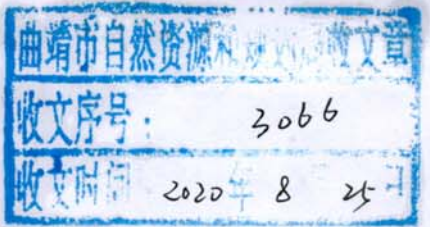 曲靖市自然资源和规划局收文章
收文序号： 3066
收文时间 2020年 8 25日